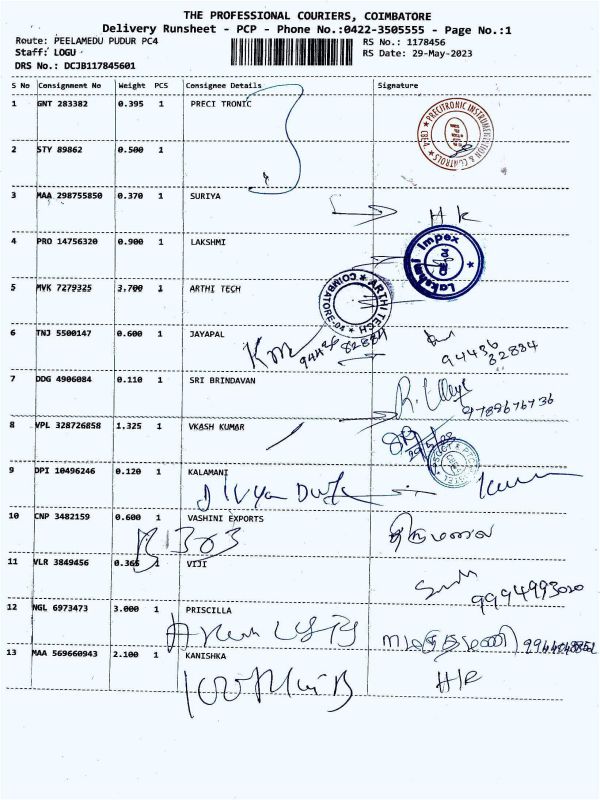 THE PROFESSIONAL COURIERS, COIMBATORE
Delivery Runsheet - PCP - Phone No.:0422-3505555 - Page No.:1
Route: PEELAMEDU PUDUR PC4
RS No.: 1178456
Staff: LOGU
RS Date: 29-May-2023
DRS No.: DCJB117845601
S No Consignment No Weight PCS Consignee Details Signature
1 GNT 283382 0.395 1 PRECI TRONIC
PRECITRONIC INSTRUMENTATION & CONTROLS CBEA
2 STY 89862 0.500 1
3 MAA 298755850 0.370 1 SURIYA
HR
4 PRO 14756320 0.900 1 LAKSHMI
Lakshmi Impex
5 MVK 7279325 3.700 1 ARTHI TECH
ARTHI TECH COIMBATORE-04
6 TNJ 5500147 0.600 1 JAYAPAL
94436 82884
94436
82884
7 DDG 4906084 0.110 1 SRI BRINDAVAN
9789676736
8 VPL 328726858 1.325 1 VKASH KUMAR
9 DPI 10496246 0.120 1 KALAMANI
10 CNP 3482159 0.600 1 VASHINI EXPORTS
B 303
11 VLR 3849456 0.365 1 VIJI
9994993020
12 NGL 6973473 3.000 1 PRISCILLA
13 MAA 569660943 2.100 1 KANISHKA
HR